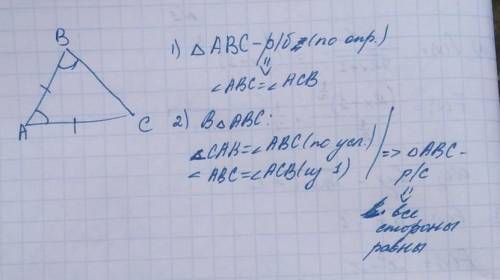 B
A
C
1) △ABC - р/б (по опр.)
⇓
∠ABC=∠ACB
2) В △ABC:
∠CAB=∠ABC (по усл.)
∠ABC=∠ACB (из 1)
=> △ABC -
р/с
⇓
все
стороны
равны